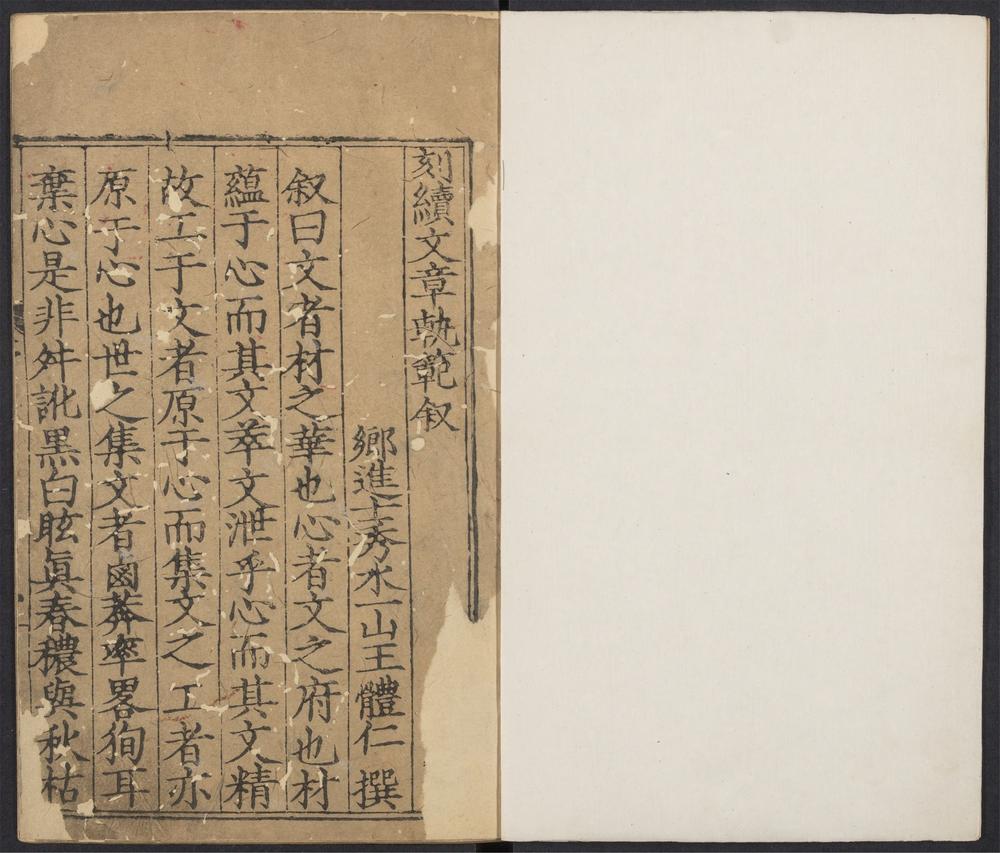 刻續文章軌範叙
鄉進士秀水一山王體仁撰
叙曰文者材之華也心者文之府也材
蘊于心而其文萃文泄乎心而其文精
故工于文者原于心而集文之工者亦
原于心也世之集文者鹵莽率畧徇耳
棄心是非舛訛黒白眩眞春穠與秋枯